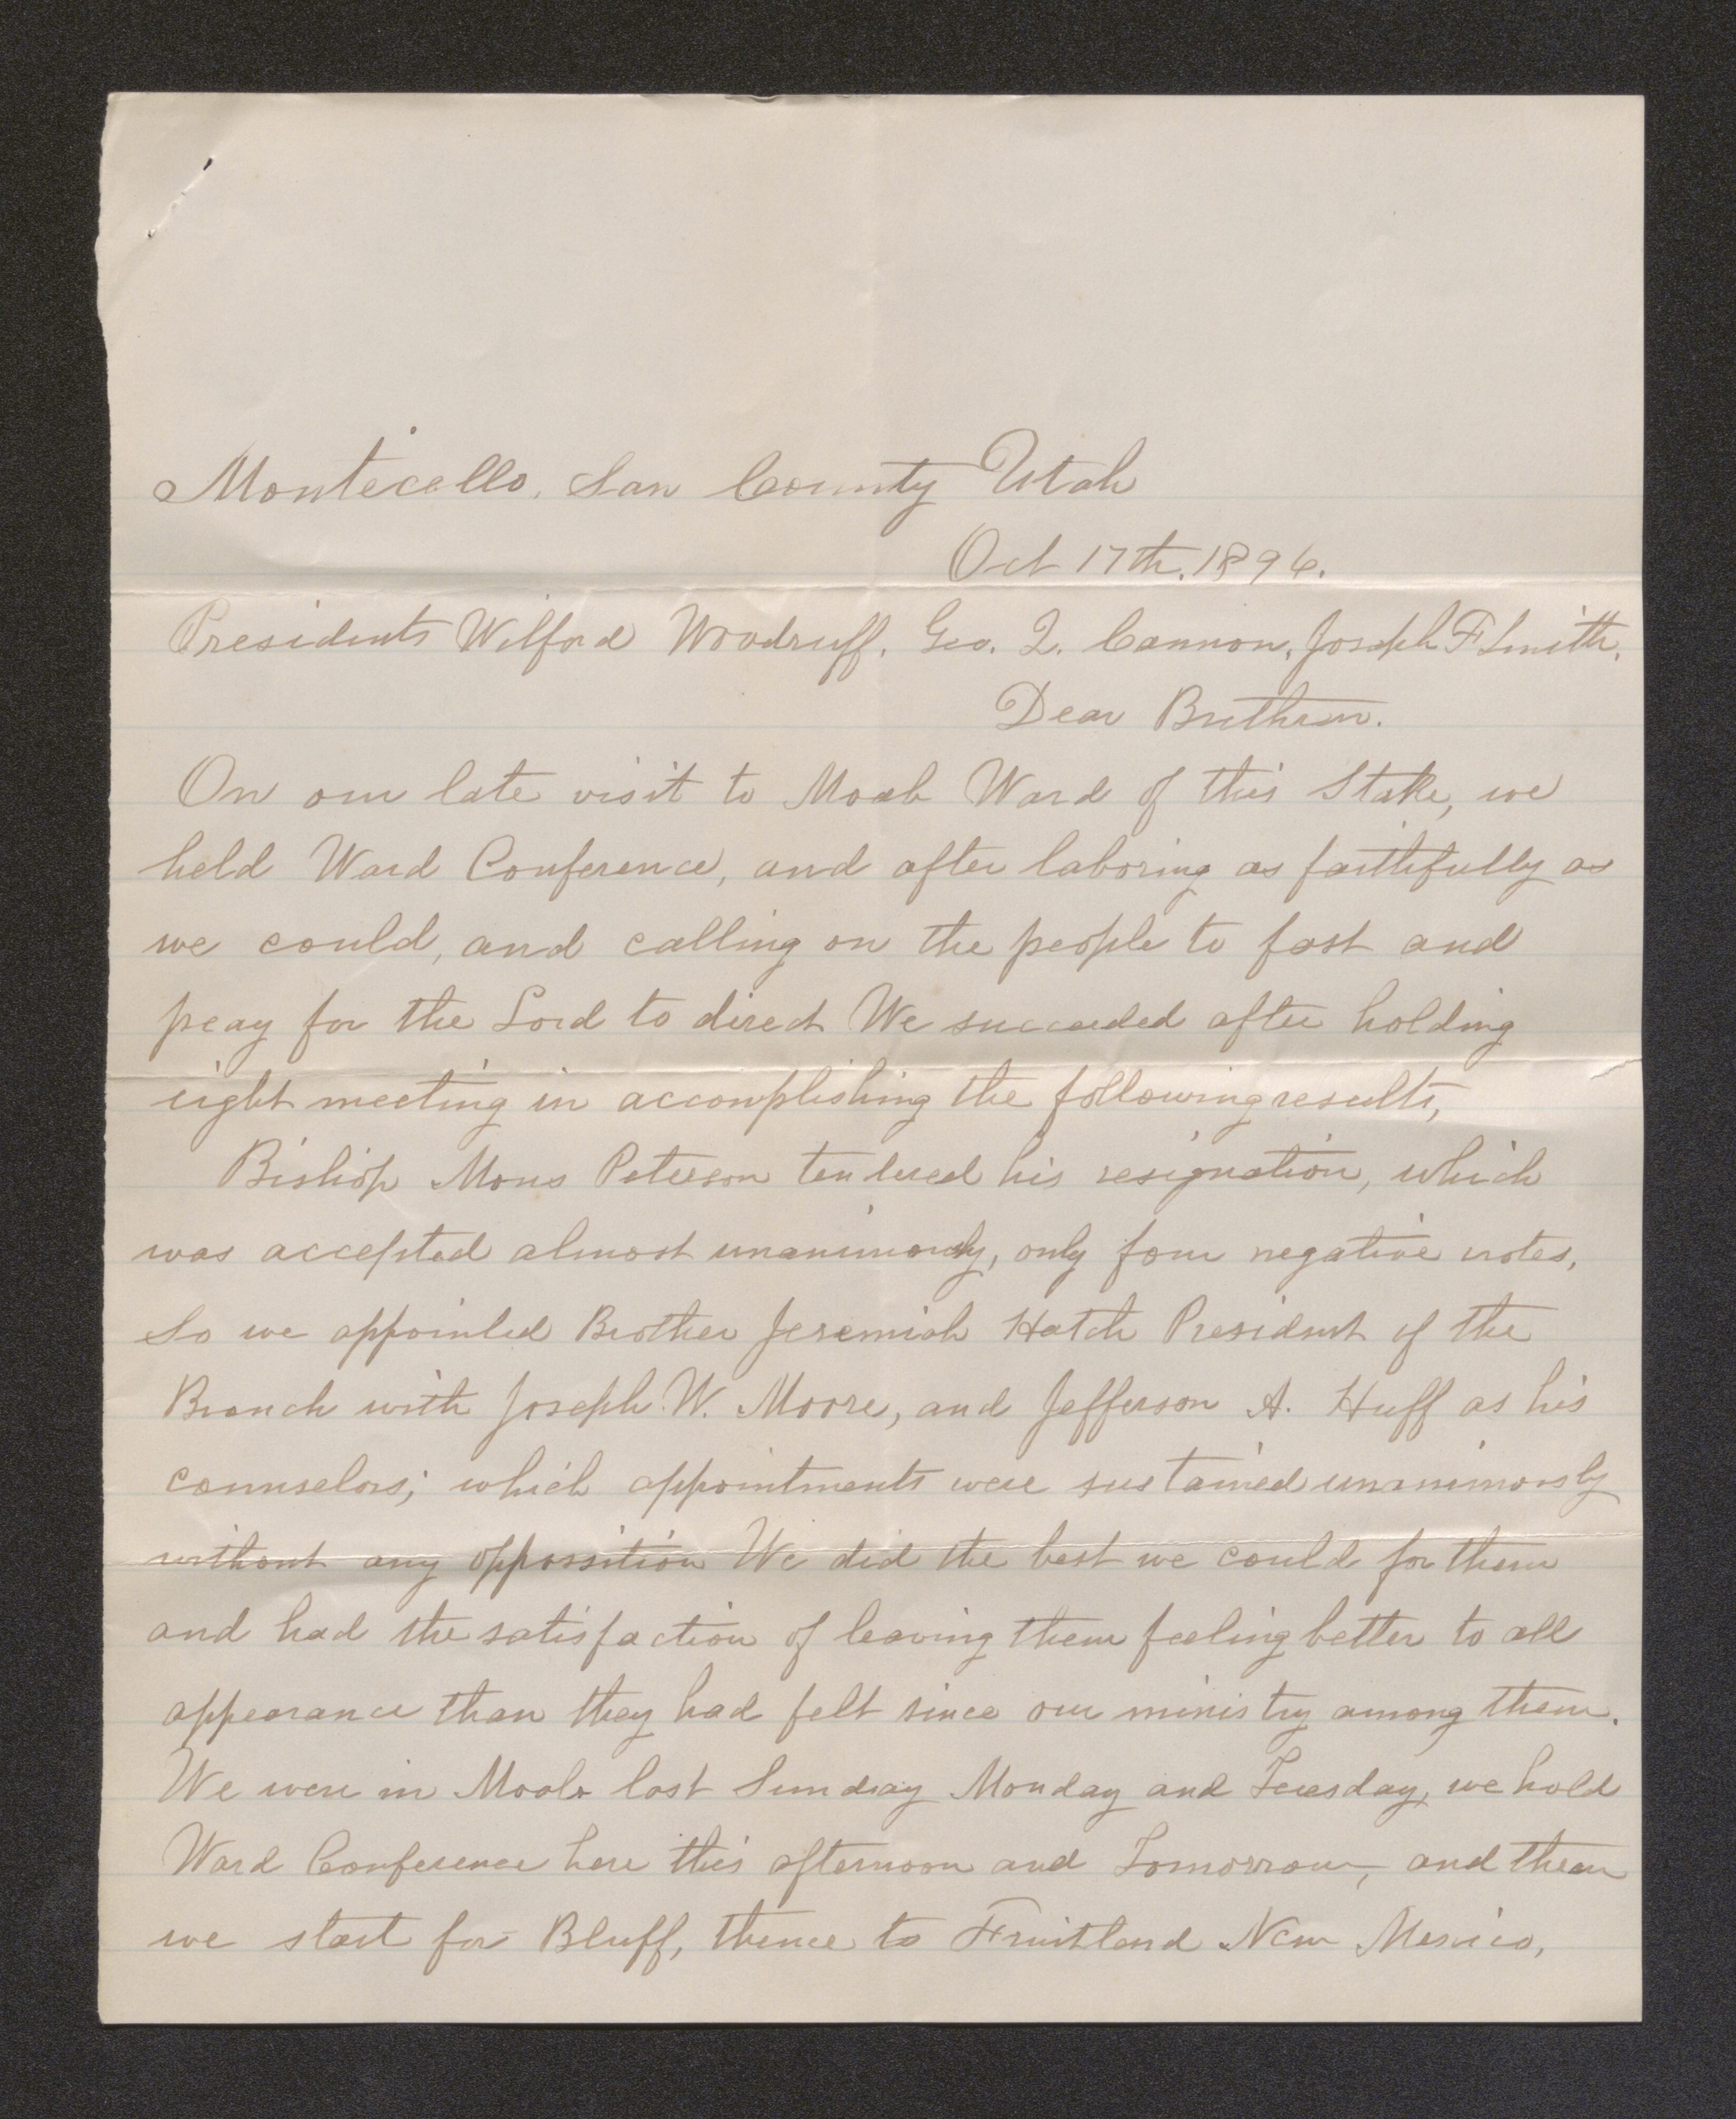 Monticello, San County Utah
Oct 17th. 1896.
Presidents Wilford Woodruff. Geo. Q. Cannon, Joseph F Smith.
Dear Brethren.
On our late visit to Moab Ward of this Stake, we
held Ward Conference, and after laboring as faithfully as
we could, and calling on the people to fast and
pray for the Lord to direct We succeeded after holding
eight meeting in accomplishing the following results,
Bishop Mons Peterson tendered his resignation, which
was accepted almost unanimously, only four negative votes,
So we appointed Brother Jeremiah Hatch President of the
Branch with Joseph W. Moore, and Jefferson A. Huff as his
counselors; which appointments were sustained unanimously
without any oppossition We did the best we could for them
and had the satisfaction of leaving them feeling better to all
appearance than they had felt since our ministry among them.
We were in Moab last Sunday Monday and Tuesday, we hold
Ward Conference here this afternoon and Tomorrow, and then
we start for Bluff, thence to Fruitland New Mexico,